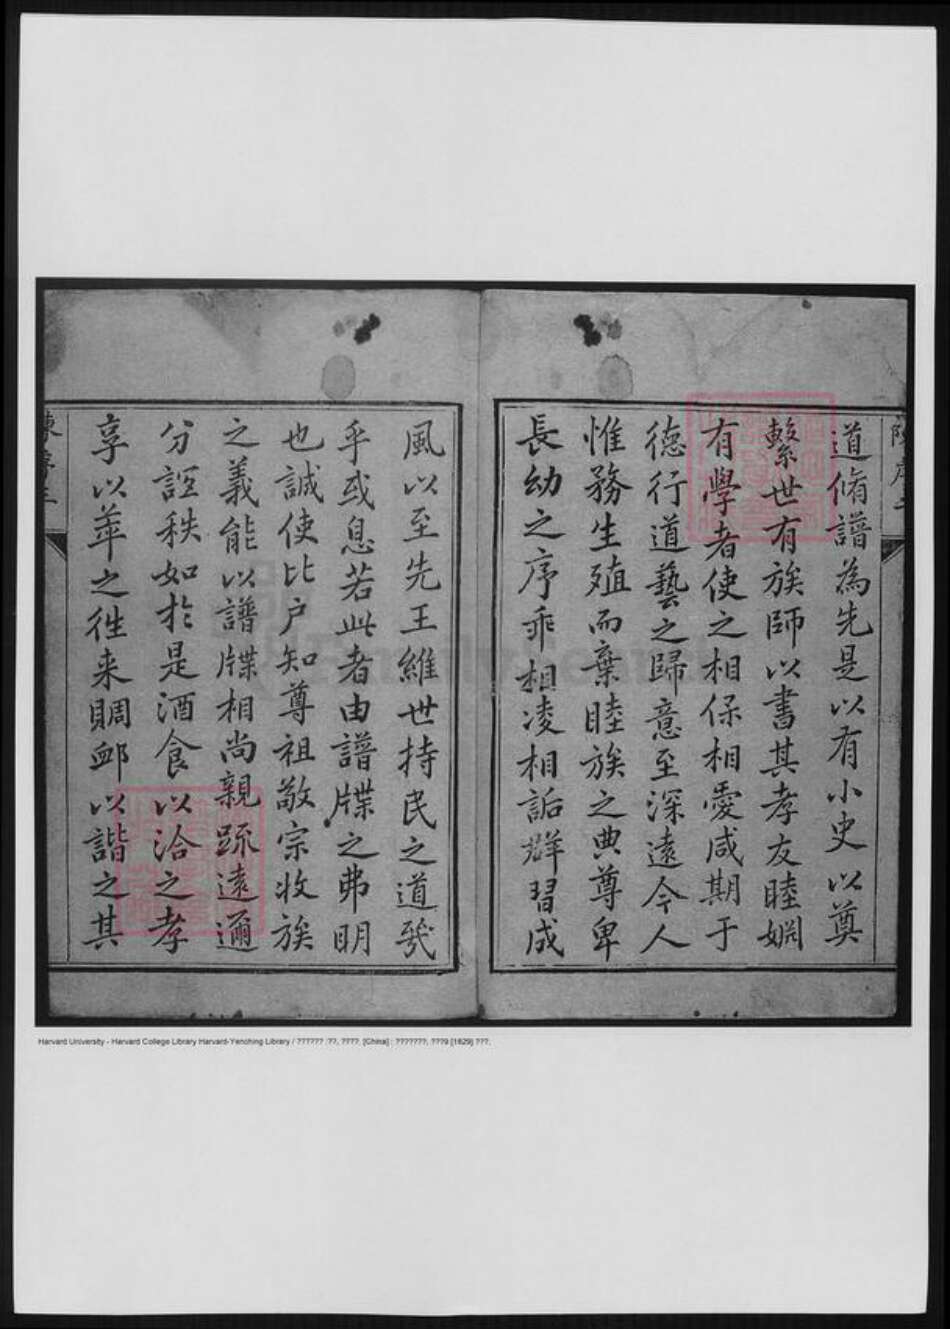 道脩譜為先是以有小史以奠
繫世有族師以書其孝友睦婣
有學者使之相保相愛咸期于
德行道藝之歸意至深遠今人
惟務生殖而棄睦族之典尊卑
長幼之序乖相凌相詬群習成
風以至先王維世持民之道幾
乎或息若此者由譜牒之弗明
也誠使比户知尊祖敬宗收族
之義能以譜牒相尚親疏遠邇
分誼秩如於是酒食以洽之孝
享以萃之徃来賙卹以諧之其
Harvard University - Harvard College Library Harvard-Yenching Library / ?????? :??, ????. [China] : ???????, ???9 [1829] ???.